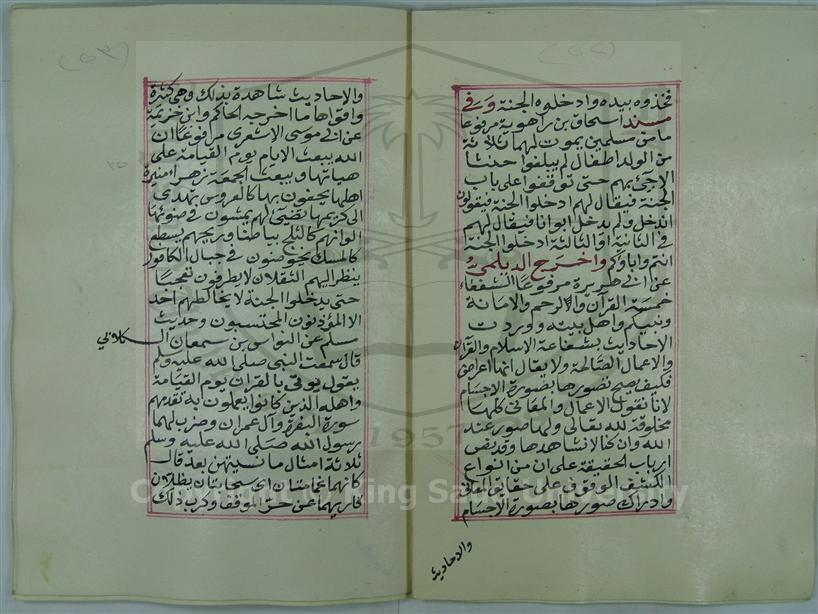 فخذوه بيده وادخلوه الجنة وفي
مسند اسحاق بن راهوية مرفوعا
ما من مسلمين يموت لهما ثلاثة
من الولد اطفال لم يبلغوا حنثا
الاجئ بهم حتى توقفوا على باب
الجنة فيقال لهم ادخلوا الجنة فيقولون
اندخل ولم يدخل ابوانا فيقال لهم
في الثانية او الثالثة ادخلوا الجنة
انتم واباؤكم واخرج الديلمي
عن ابي هريرة مرفوعا الشفعاء
خمسة القران والرحم والامانة
ونبيكم واهل بيته ووردت
الاحاديث بشفاعة الاسلام والقران
والاعمال الصالحة ولا يقال انها اعراض
فكيف يصح تصورها بصورة الاجسام
لانا نقول الاعمال والمعاني كلها
مخلوقة لله تعالى ولها صور عند
الله وان كنا لا نشاهدها وقد نص
ارباب الحقيقة على ان من انواع
الكشف الوقوف على حقايق المعاني
وادراك صورها بصورة الاجسام
والاحاديث
والاحاديث شاهدة بذلك وهي كثيرة
واقواها ما اخرجه الحاكم وابن خزيمة
عن ابي موسى الاشعري مرفوعا ان
الله يبعث الايام يوم القيامة على
هياتها ويبعث الجمعة زهراء منيرة
اهلها يحفون بها كالعروس تهدى
الى كريمها تضيئ لهم يمشون في ضوئها
الوانهم كالثلج بياضا وريحهم يسطع
كالمسك يخوضون في جبال الكافور
ينظر اليهم الثقلان لا يطرفون تعجبا
حتى يدخلوا الجنة لا يخالطهم احد
الا المؤذنون المحتسبون وحديث
مسلم عن النواس بن سمعان الكلابي
قال سمعت النبي صلى الله عليه وسلم
يقول يؤتى بالقران يوم القيامة
واهله الذين كانوا يعملون به تقدمهم
سورة البقرة وآل عمران وضرب لهما
رسول الله صلى الله عليه وسلم
ثلاثة امثال ما نسيتهن بعد قال
كانهما غمامتان اي سحابتان يظلان
قاريهما عن حر الموقف وكرب ذلك
Copyright © King Saud University
1957